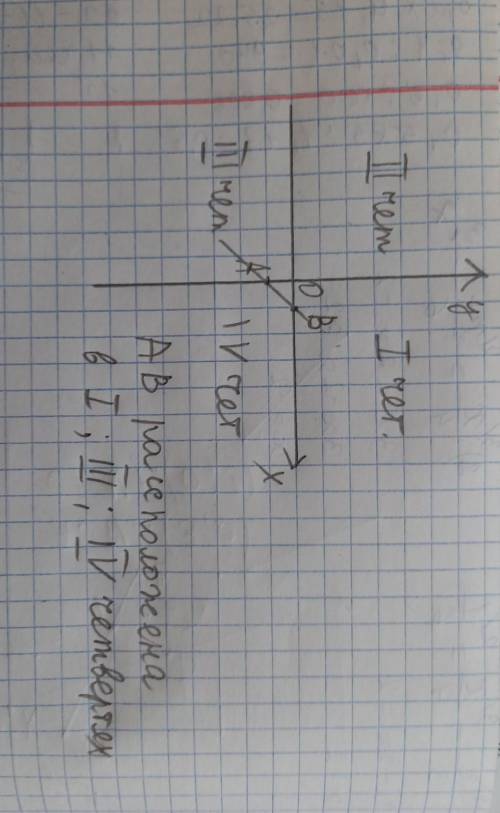 y
II чет
I чет.
O
B
A
x
III чет
IV чет
AB расположена
в I; III; IV четвертях